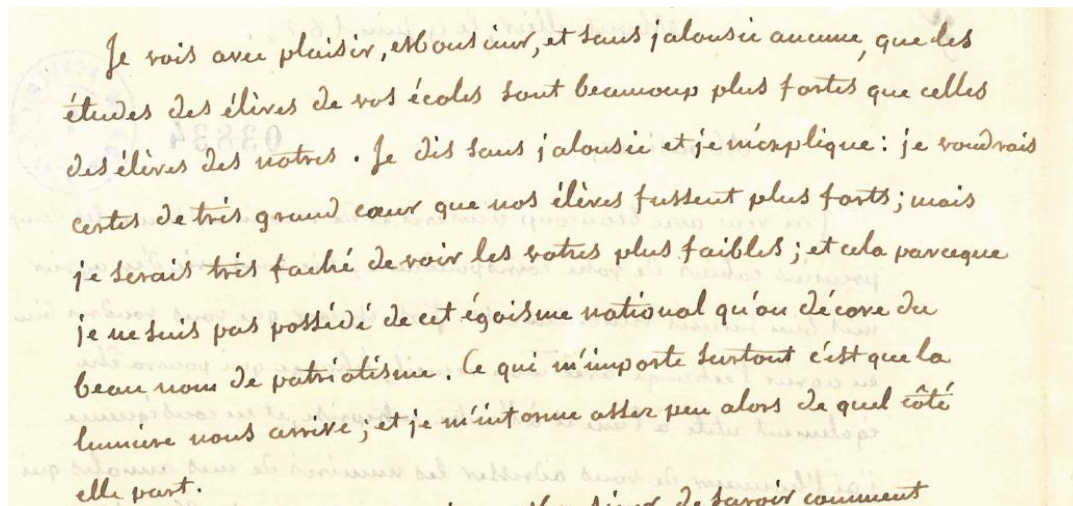 Je vois avec plaisir, Monsieur, et sans jalousie aucune, que les
études des élèves de vos écoles sont beaucoup plus fortes que celles
des élèves des notres. Je dis sans jalousie et je m'explique : je voudrais
certes de très grand cœur que nos élèves fussent plus forts ; mais
je serais très faché de voir les votres plus faibles ; et cela parceque
je ne suis pas possédé de cet égoisme national qu'on décore du
beau nom de patriotisme. Ce qui m'importe surtout c'est que la
lumière nous arrive ; et je m'informe assez peu alors de quel côté
elle part.
de savoir comment